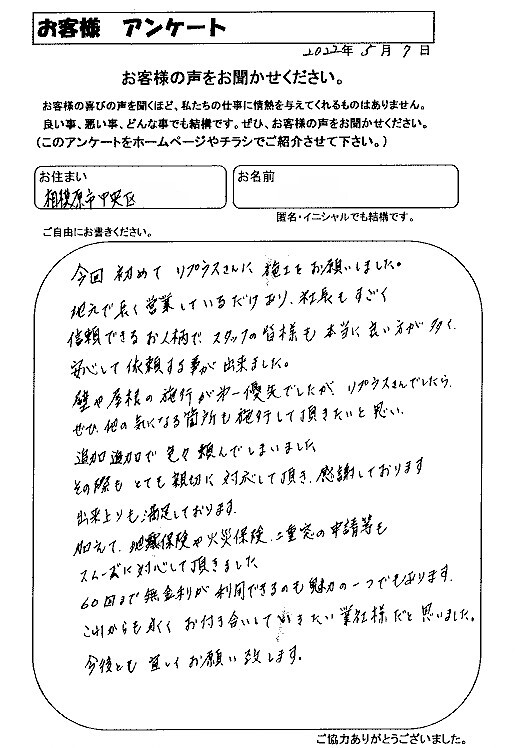 お客様 アンケート
2022年5月7日
お客様の声をお聞かせください。
お客様の喜びの声を聞くほど、私たちの仕事に情熱を与えてくれるものはありません。
良い事、悪い事、どんな事でも結構です。ぜひ、お客様の声をお聞かせください。
(このアンケートをホームページやチラシでご紹介させて下さい。)
お住まい
相模原市中央区
お名前
匿名・イニシャルでも結構です。
ご自由にお書きください。
今回 初めて リプラスさんに 施工を お願いしました。
地元で長く営業しているだけあり、社長もすごく
信頼できるお人柄で、スタッフの皆様も 本当に良い方が多く、
安心して依頼する事が出来ました。
壁や屋根の施行が第一優先でしたが、リプラスさんでしたら、
ぜひ、他の気になる箇所も施行して頂きたいと思い、
追加追加で色々頼んでしまいました
その際も とても親切に 対応して頂き、感謝しております
出来上りも満足しております。
加えて、地震保険や火災保険、二重窓の申請等も
スムーズに対応して頂きました
60回まで無金利が利用できるのも魅力の一つでもあります。
これからも永く お付き合いしていきたい業社様だと思いました。
今後とも 宜しくお願い致します。
ご協力ありがとうございました。